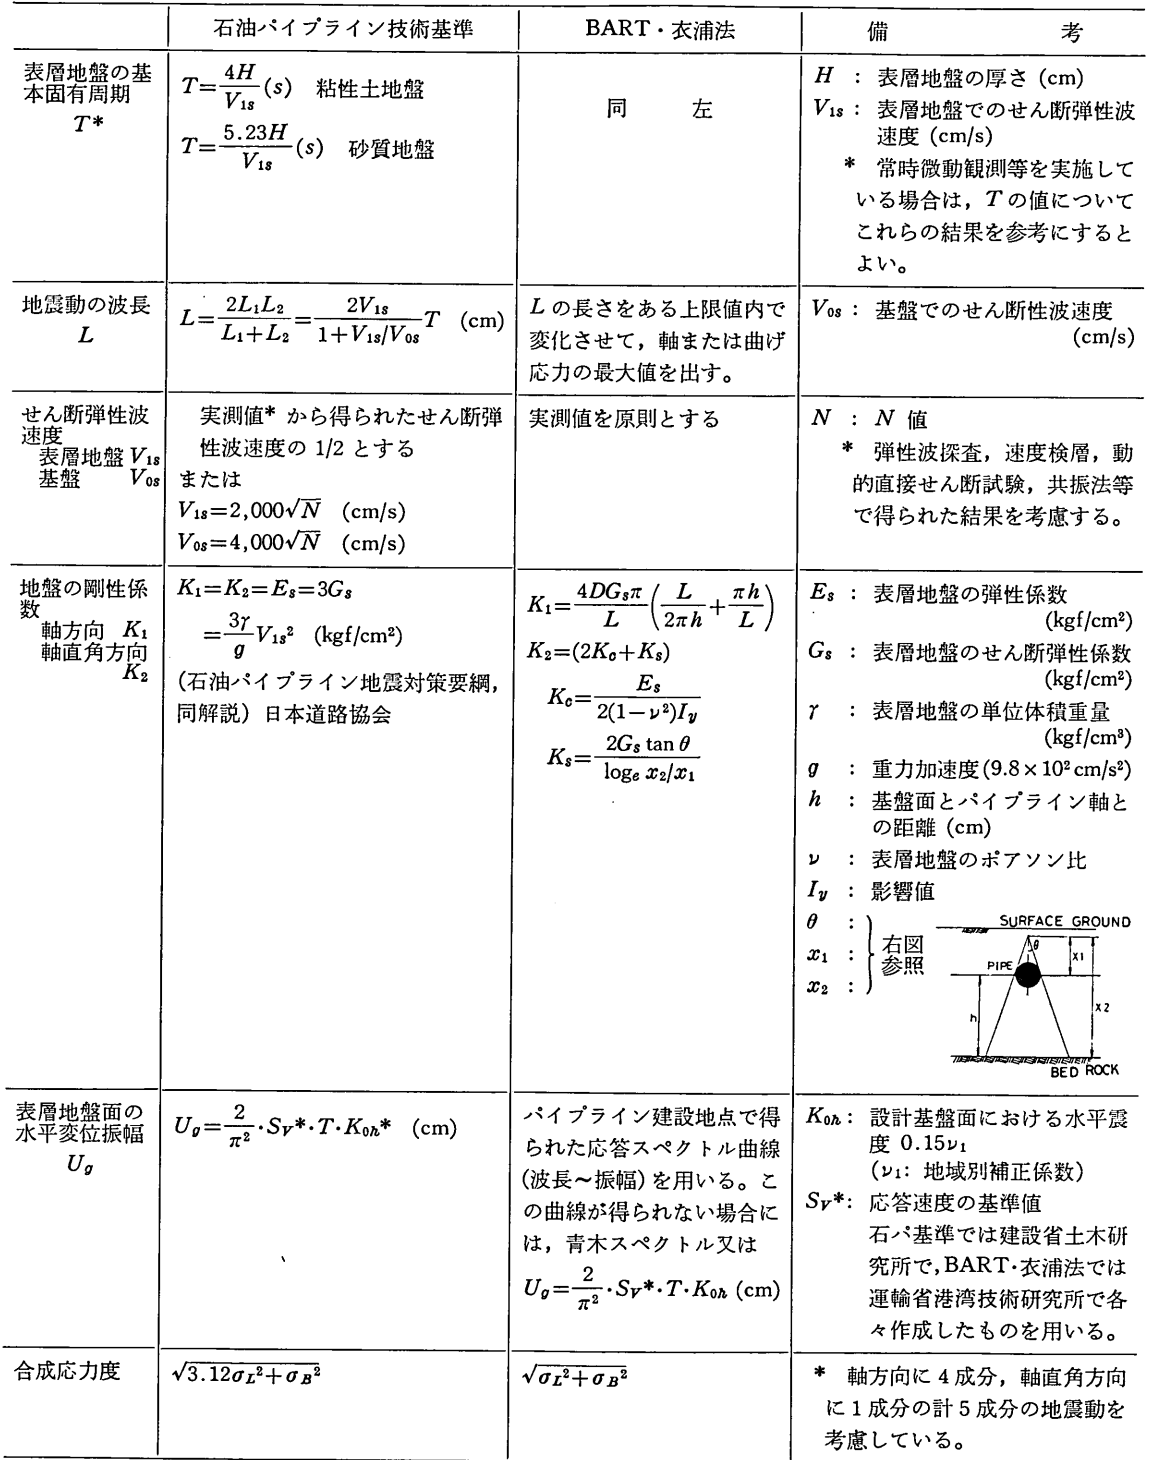 石油パイプライン技術基準
BART・衣浦法
備 考
表層地盤の基
本固有周期
T*
T=4H/V₁ₛ(s) 粘性土地盤
T=5.23H/V₁ₛ(s) 砂質地盤
同 左
H : 表層地盤の厚さ (cm)
V₁ₛ : 表層地盤でのせん断弾性波
速度 (cm/s)
* 常時微動観測等を実施して
いる場合は，Tの値について
これらの結果を参考にすると
よい。
地震動の波長
L
L=2L₁L₂/(L₁+L₂)=2V₁ₛ/(1+V₁ₛ/V₀ₛ)T (cm)
Lの長さをある上限値内で
変化させて，軸または曲げ
応力の最大値を出す。
V₀ₛ : 基盤でのせん断性波速度
(cm/s)
せん断弾性波
速度
表層地盤 V₁ₛ
基盤 V₀ₛ
実測値* から得られたせん断弾
性波速度の 1/2 とする
または
V₁ₛ=2,000√N (cm/s)
V₀ₛ=4,000√N (cm/s)
実測値を原則とする
N : N 値
* 弾性波探査，速度検層，動
的直接せん断試験，共振法等
で得られた結果を考慮する。
地盤の剛性係
数
軸方向 K₁
軸直角方向
K₂
K₁=K₂=Eₛ=3Gₛ
=3γ/g V₁ₛ² (kgf/cm²)
(石油パイプライン地震対策要綱，
同解説) 日本道路協会
K₁=4DGₛπ/L(L/2πh+πh/L)
K₂=(2K_c+Kₛ)
K_c=Eₛ/2(1−ν²)I_y
Kₛ=2Gₛ tan θ/logₑ x₂/x₁
Eₛ : 表層地盤の弾性係数
(kgf/cm²)
Gₛ : 表層地盤のせん断弾性係数
(kgf/cm²)
γ : 表層地盤の単位体積重量
(kgf/cm³)
g : 重力加速度(9.8×10² cm/s²)
h : 基盤面とパイプライン軸と
の距離 (cm)
ν : 表層地盤のポアソン比
I_y : 影響値
θ :
x₁ :
x₂ :
右図
参照
SURFACE GROUND
θ
X1
PIPE
X2
h
BED ROCK
表層地盤面の
水平変位振幅
U_g
U_g=2/π²・S_V*・T・K₀ₕ* (cm)
パイプライン建設地点で得
られた応答スペクトル曲線
(波長～振幅)を用いる。こ
の曲線が得られない場合に
は，青木スペクトル又は
U_g=2/π²・S_V*・T・K₀ₕ (cm)
K₀ₕ : 設計基盤面における水平震
度 0.15ν₁
(ν₁: 地域別補正係数)
S_V* : 応答速度の基準値
石パ基準では建設省土木研
究所で，BART・衣浦法では
運輸省港湾技術研究所で各
々作成したものを用いる。
合成応力度
√(3.12σ_L²+σ_B²)
√(σ_L²+σ_B²)
* 軸方向に4成分，軸直角方向
に1成分の計5成分の地震動を
考慮している。